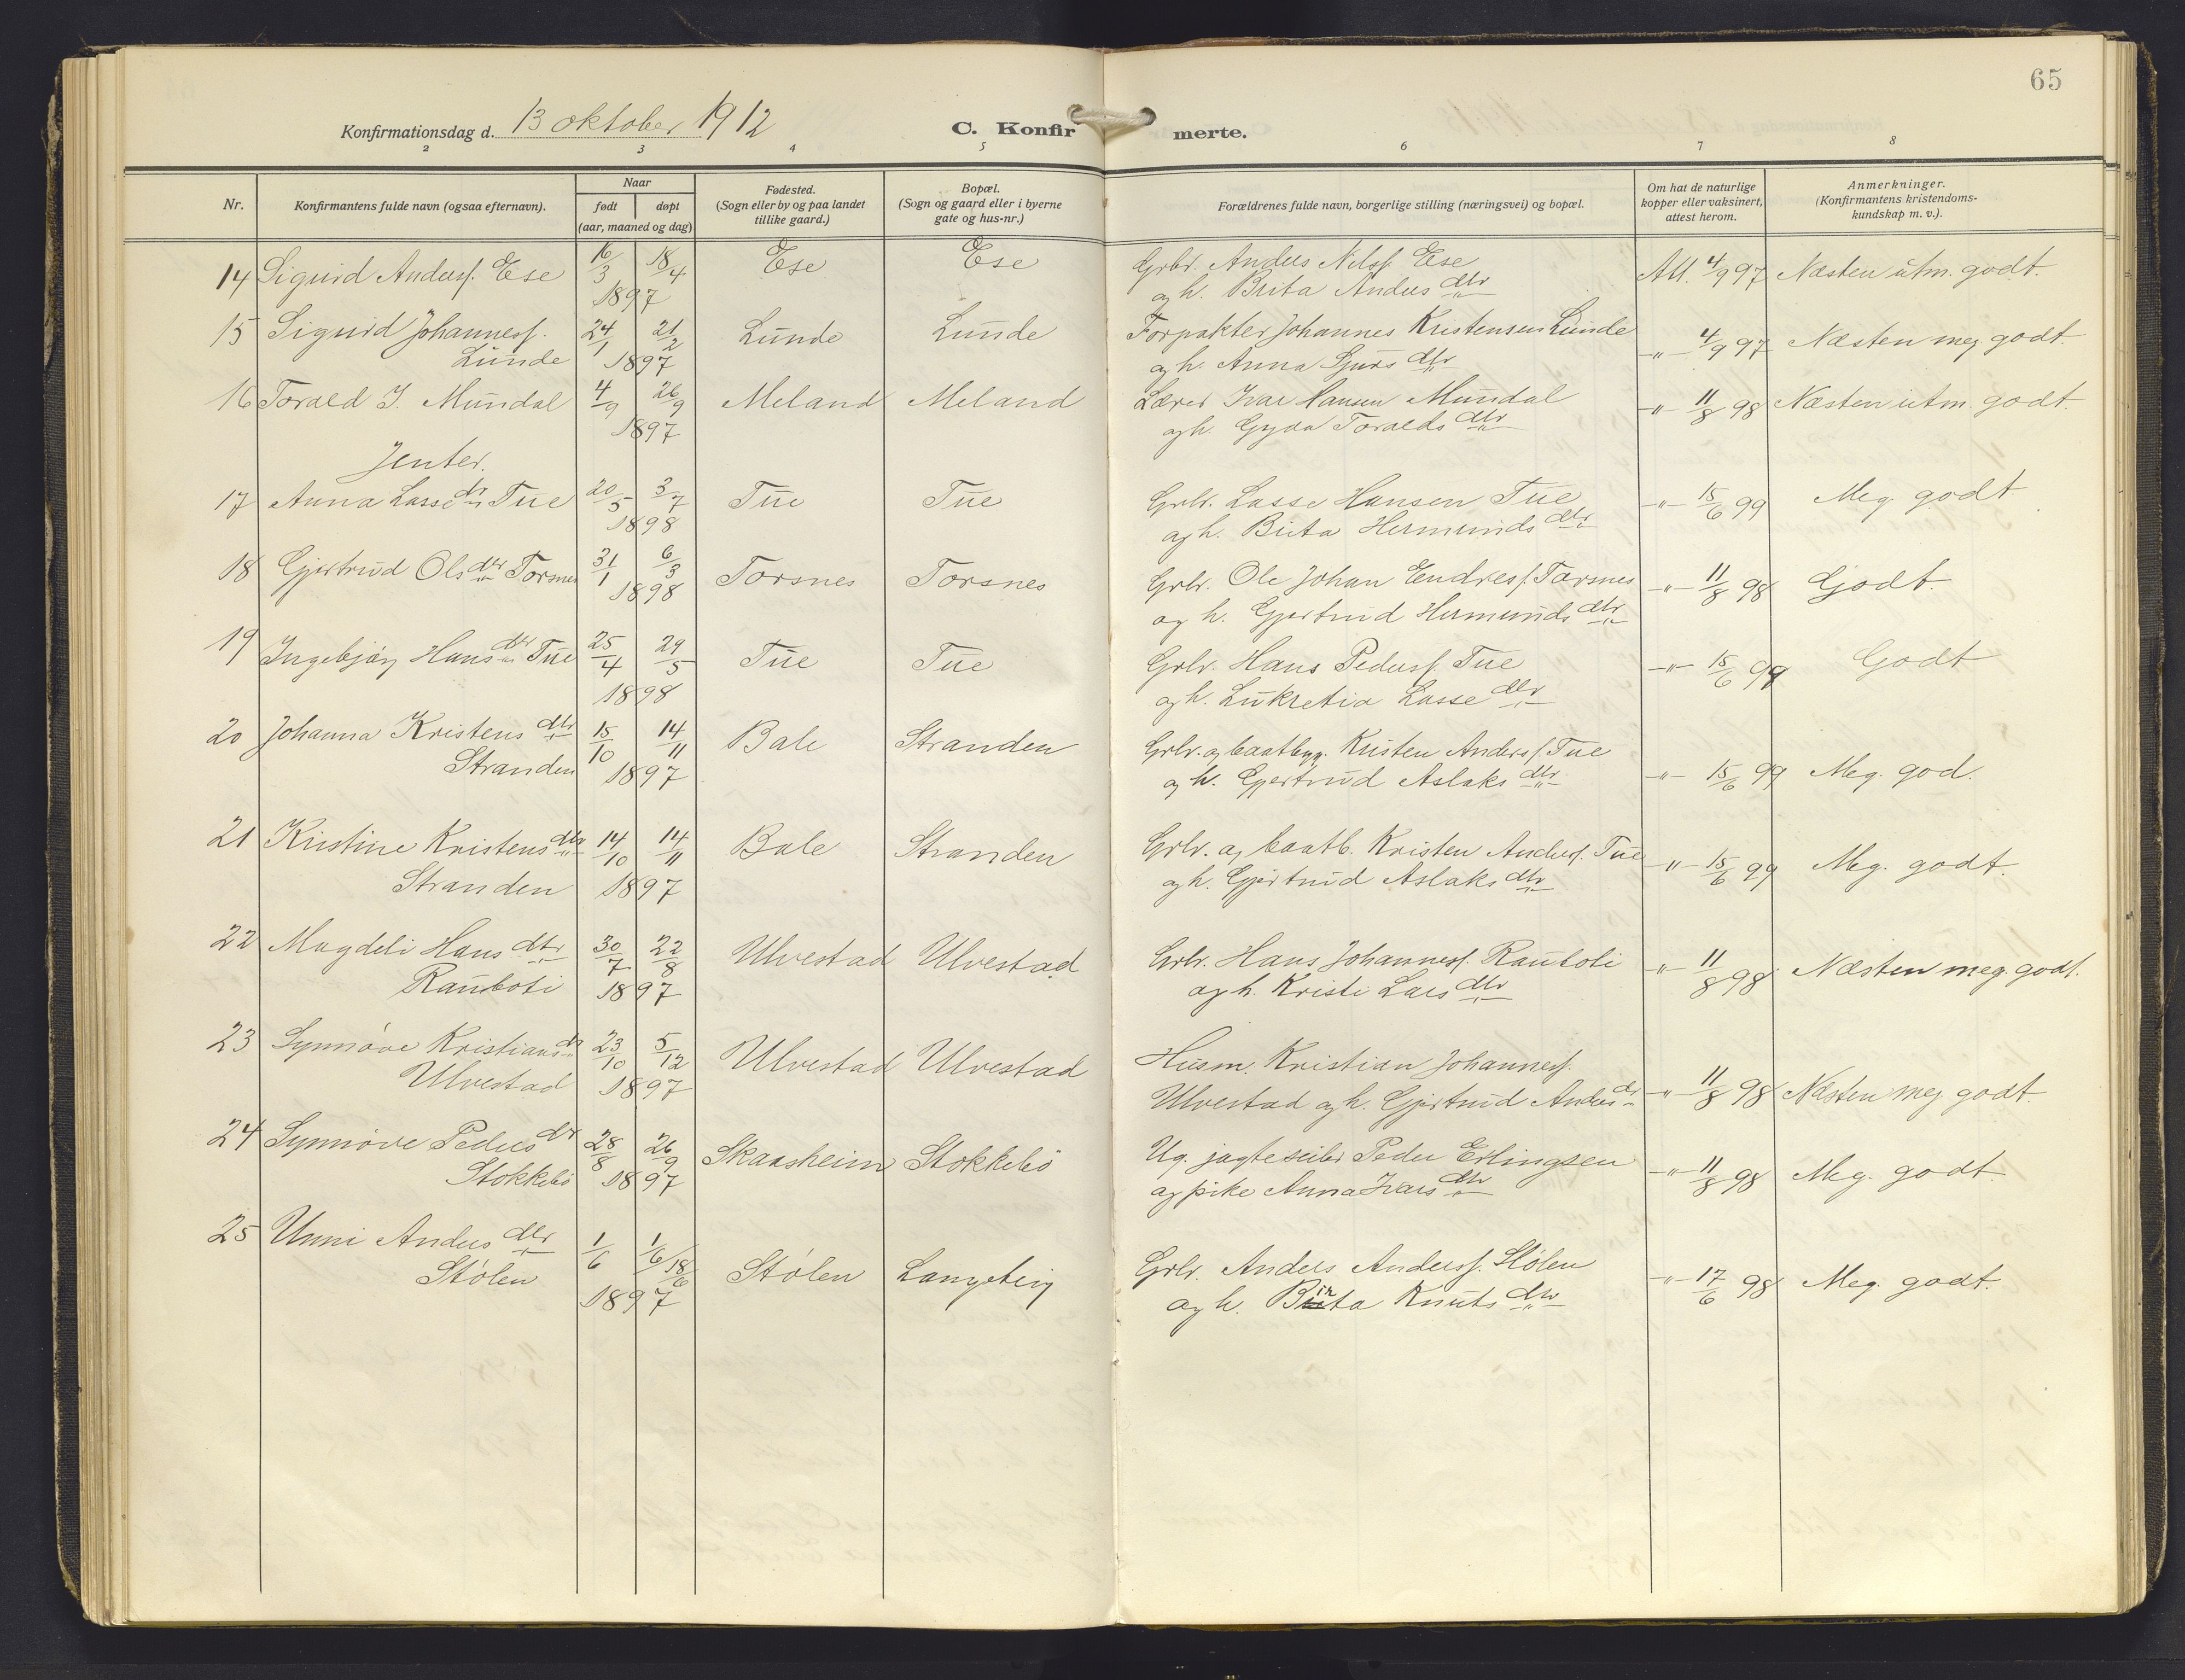 65
Konfirmationsdag d. 13 oktober 1912
C. Konfir merte.
2 3 4 5 6 7 8
Nr.
Konfirmantens fulde navn (ogsaa efternavn).
Naar
født døpt
(aar, maaned og dag)
Fødested.
(Sogn eller by og paa landet
tillike gaard.)
Bopæl.
(Sogn og gaard eller i byerne
gate og hus-nr.)
Forældrenes fulde navn, borgerlige stilling (næringsvei) og bopæl.
Om hat de naturlige
kopper eller vaksinert,
attest herom.
Anmerkninger.
(Konfirmantens kristendoms-
kundskap m. v.).
14 Sigurd Anderss. Ese 16/3 18/4 Ese Ese Grbr. Anders Nilss. Ese Att. 4/9 97 Næsten utm. godt.
1897 og h. Brita Andersdtr
15 Sigurd Johanness. 24/1 21/2 Lunde Lunde Forpakter Johannes Kristensen Lunde -"- 4/9 97 Næsten meg. godt.
Lunde 1897 og h. Anna Sjursdtr
16 Torald I. Mundal 4/9 26/9 Meland Meland Lærer Ivar Hansen Mundal -"- 11/8 98 Næsten utm. godt.
1897 og h. Gyda Toraldsdtr
Jenter.
17 Anna Lassedtr Tue 20/5 3/7 Tue Tue Grbr. Lasse Hansen Tue -"- 15/6 99 Meg. godt
1898 og h. Brita Hermundsdtr
18 Gjertrud Olsdtr Torsnes 31/1 6/3 Torsnes Torsnes Grbr. Ole Johan Endress. Torsnes -"- 11/8 98 Godt.
1898 og h. Gjertrud Hermundsdtr
19 Ingebjørg Hansdtr Tue 25/4 29/5 Tue Tue Grbr. Hans Pederss. Tue -"- 15/6 99 Godt
1898 og h. Lukretia Lassedtr
20 Johanna Kristensdtr 15/10 14/11 Bale Stranden Grbr. og baatbygg. Kristen Anderss. Tue -"- 15/6 99 Meg. god.
Stranden 1897 og h. Gjertrud Aslaksdtr
21 Kristine Kristensdtr 14/10 14/11 Bale Stranden Grbr. og baatb. Kristen Anderss. Tue -"- 15/6 99 Meg. godt.
Stranden 1897 og h. Gjertrud Aslaksdtr
22 Magdeli Hansdtr 30/7 22/8 Ulvestad Ulvestad Grbr. Hans Johanness. Rauboti -"- 11/8 98 Næsten meg. godt.
Rauboti 1897 og h. Kristi Larsdtr
23 Synnøve Kristiansdtr 23/10 5/12 Ulvestad Ulvestad Husm. Kristian Johanness.
Ulvestad 1897 Ulvestad og h. Gjertrud Andersdtr -"- 11/8 98 Næsten meg. godt.
24 Synnøve Pedersdtr 28/8 26/9 Skaasheim Stokkebø Ug. jagteseiler Peder Erlingsen -"- 11/8 98 Meg. godt
Stokkebø 1897 og pike Anna Ivarsdtr
25 Unni Andersdtr 1/6 1/6 18/6 Stølen Langeteig Grbr. Anders Anderss. Stølen -"- 17/6 98 Meg. godt.
Stølen 1897 og h. Birta Knutsdtr